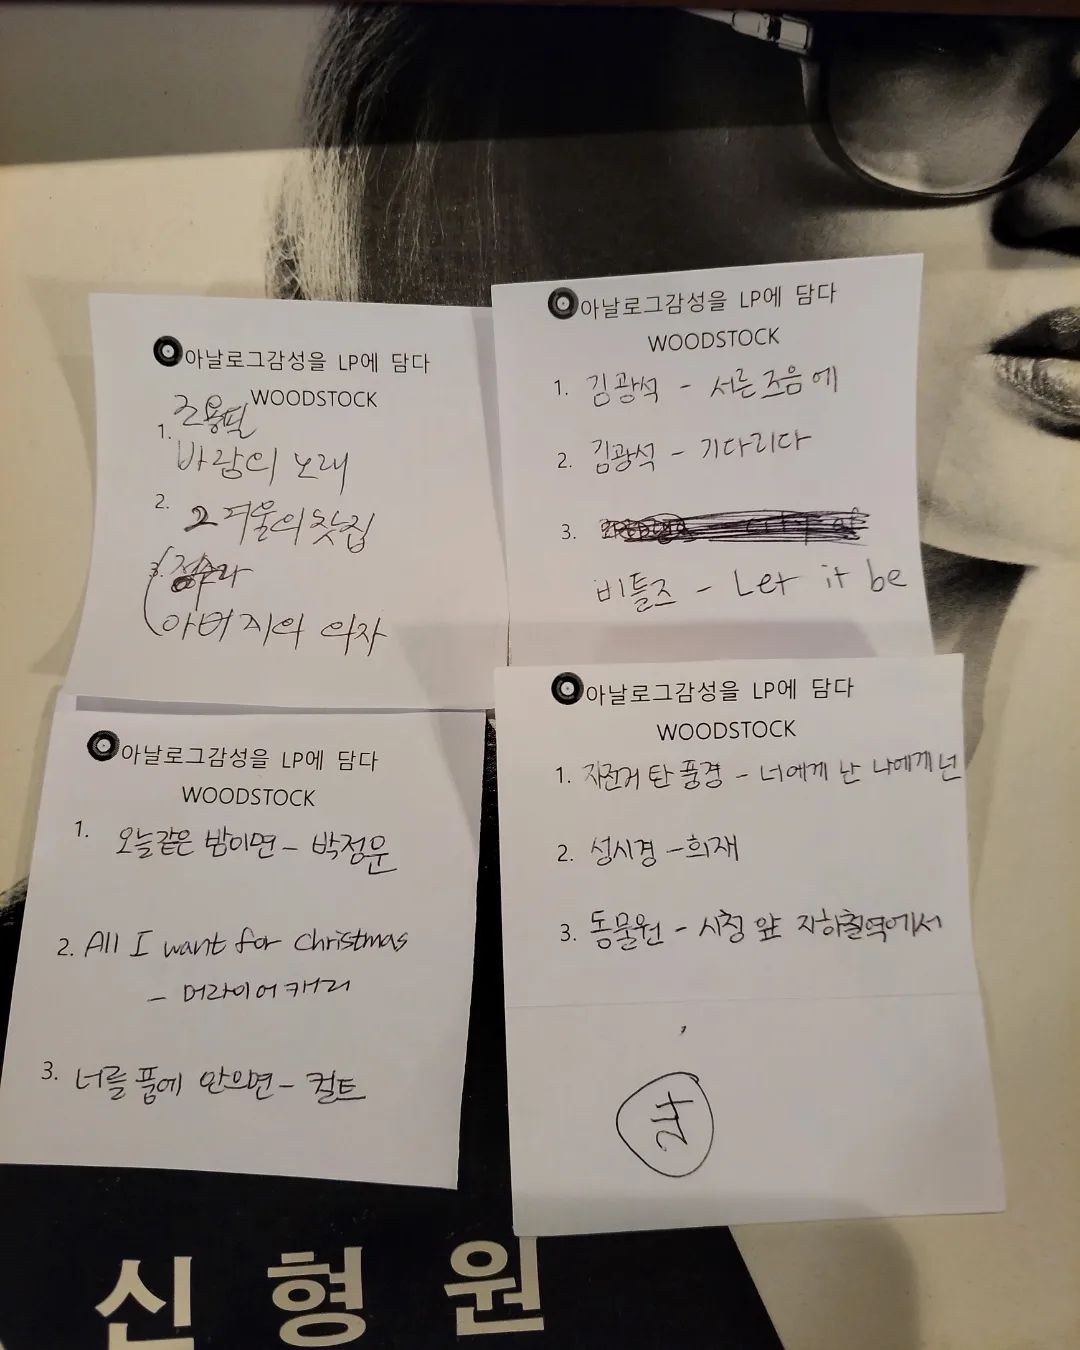 아날로그감성을 LP에 담다
WOODSTOCK
조용필
1. 바람의 노래
2. 그겨울의찻집
3. 정수라
아버지의 의자
아날로그감성을 LP에 담다
WOODSTOCK
1. 김광석 - 서른즈음에
2. 김광석 - 기다리다
3.
비틀즈 - Let it be
아날로그감성을 LP에 담다
WOODSTOCK
1. 오늘같은 밤이면 - 박정운
2. All I want for christmas
- 머라이어캐리
3. 너를 품에 안으면 - 컬트
아날로그감성을 LP에 담다
WOODSTOCK
1. 자전거 탄 풍경 - 너에게 난 나에게 넌
2. 성시경 - 희재
3. 동물원 - 시청 앞 지하철역에서
24
신형원